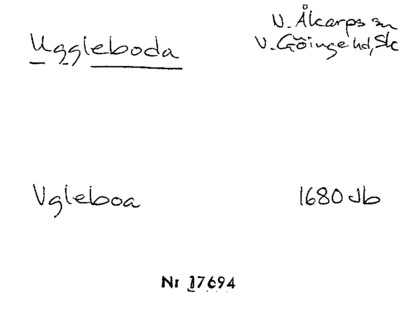 Uggleboda
N. Åkarps sn
V. Göinge hd, Sk
Vgleboa 1680 Jb
Nr 17694